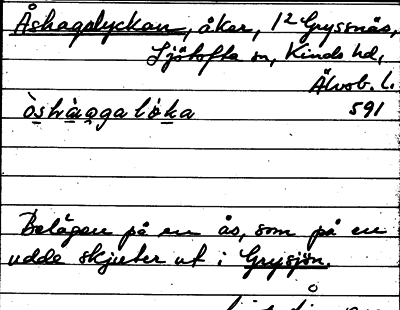 Åshagalyckan, åker, 12 Gryssnäs,
Ljötofta sn, Kinds hd,
Älvsb. l.
òshàga lo̊ka 591
Belägen på en ås, som på en
udde skjuter ut i Grysjön.